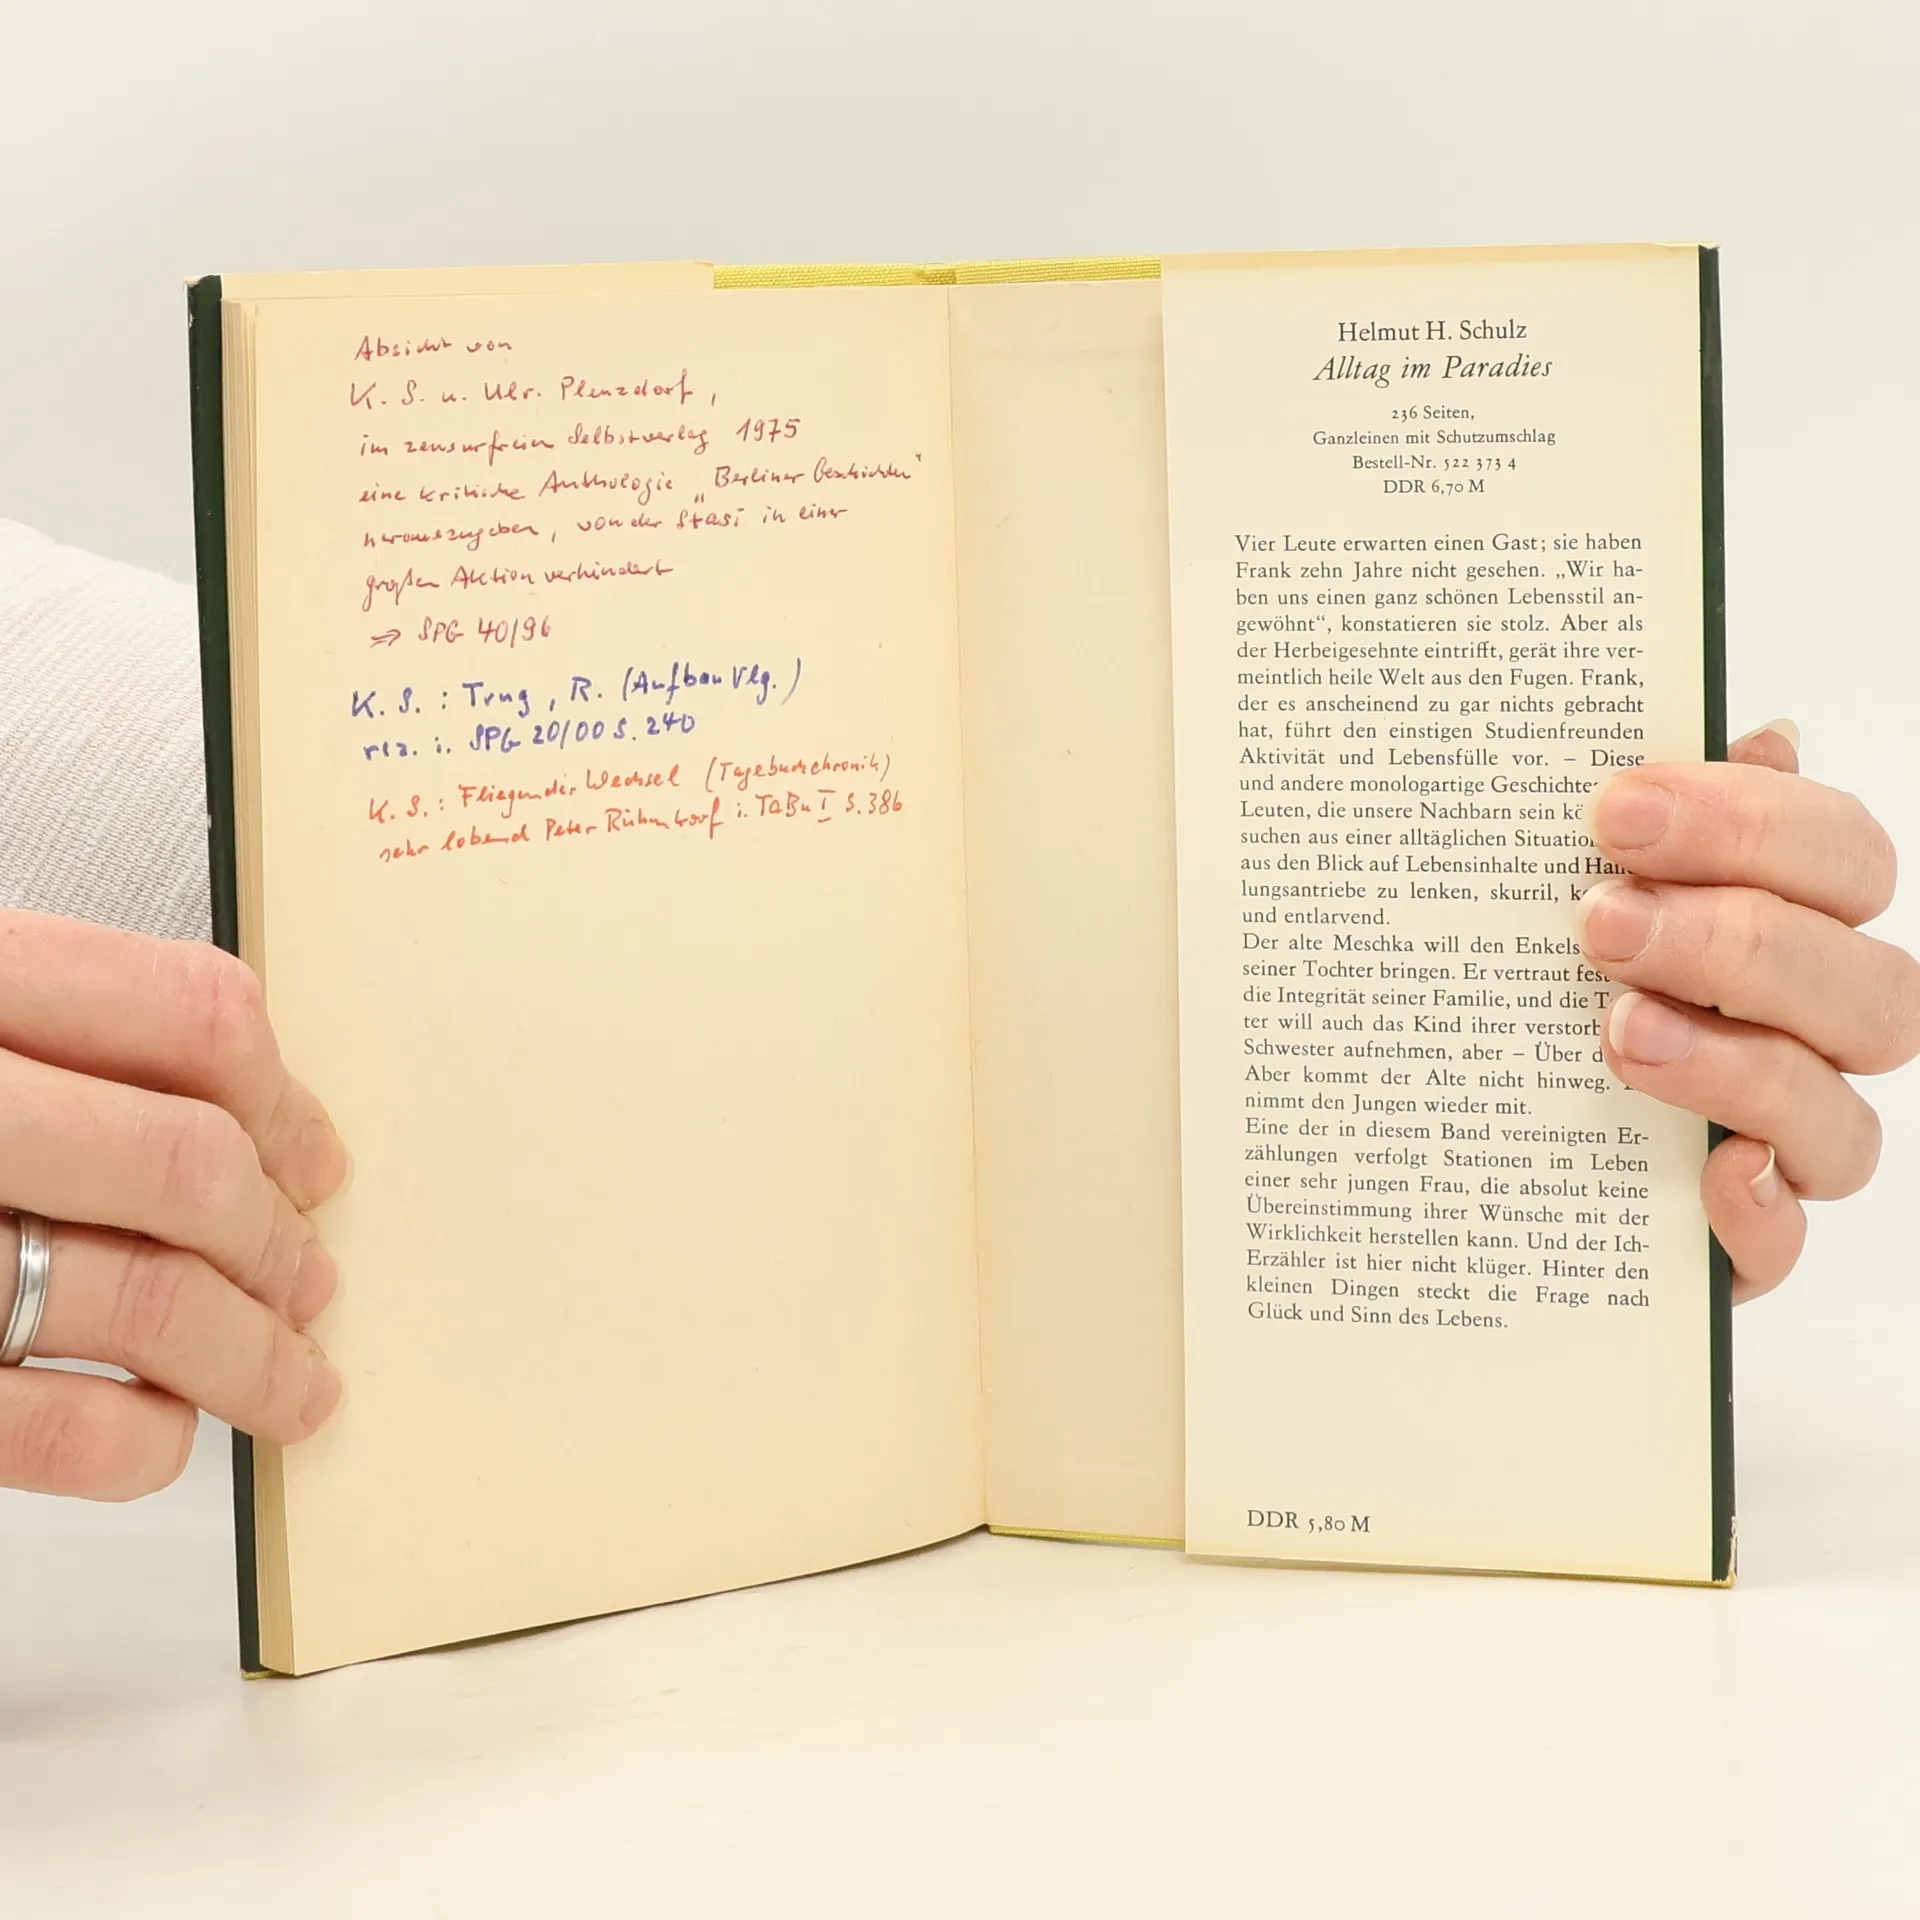 Absicht von
K. S. u. Ulr. Plenzdorf,
im zensurfreien Selbstverlag 1975
eine kritische Anthologie „Berliner Geschichten“
herauszugeben, von der Stasi in einer
großen Aktion verhindert
⇒ SPG 40/96
K. S.: Trug, R. (Aufbau Vlg.)
rez. i. SPG 20/00 S. 240
K. S.: Fliegender Wechsel (Tagebuchchronik)
sehr lobend Peter Rühmkorf i. TaBu I S. 386
Helmut H. Schulz
Alltag im Paradies
236 Seiten,
Ganzleinen mit Schutzumschlag
Bestell-Nr. 522 373 4
DDR 6,70 M
Vier Leute erwarten einen Gast; sie haben
Frank zehn Jahre nicht gesehen. „Wir ha-
ben uns einen ganz schönen Lebensstil an-
gewöhnt“, konstatieren sie stolz. Aber als
der Herbeigesehnte eintrifft, gerät ihre ver-
meintlich heile Welt aus den Fugen. Frank,
der es anscheinend zu gar nichts gebracht
hat, führt den einstigen Studienfreunden
Aktivität und Lebensfülle vor. – Diese
und andere monologartige Geschichte
Leuten, die unsere Nachbarn sein kö
suchen aus einer alltäglichen Situatio
aus den Blick auf Lebensinhalte und Han
lungsantriebe zu lenken, skurril, k
und entlarvend.
Der alte Meschka will den Enkels
seiner Tochter bringen. Er vertraut fest
die Integrität seiner Familie, und die T
ter will auch das Kind ihrer verstorb
Schwester aufnehmen, aber – Über d
Aber kommt der Alte nicht hinweg.
nimmt den Jungen wieder mit.
Eine der in diesem Band vereinigten Er-
zählungen verfolgt Stationen im Leben
einer sehr jungen Frau, die absolut keine
Übereinstimmung ihrer Wünsche mit der
Wirklichkeit herstellen kann. Und der Ich-
Erzähler ist hier nicht klüger. Hinter den
kleinen Dingen steckt die Frage nach
Glück und Sinn des Lebens.
DDR 5,80 M